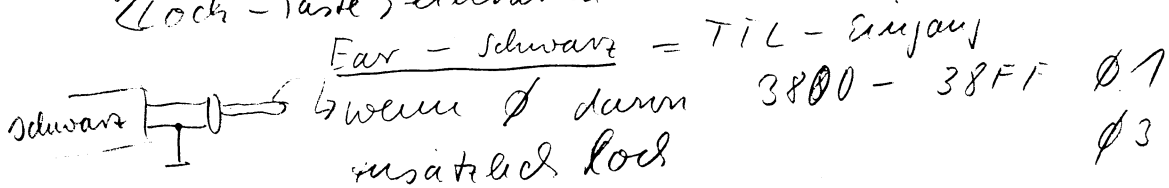 Lloch - Taste
Ear - Schwarz = TTL - Eingang
schwarz
↳ wenn Ø dann 3800 - 38FF Ø1
zusätzlich loch Ø3